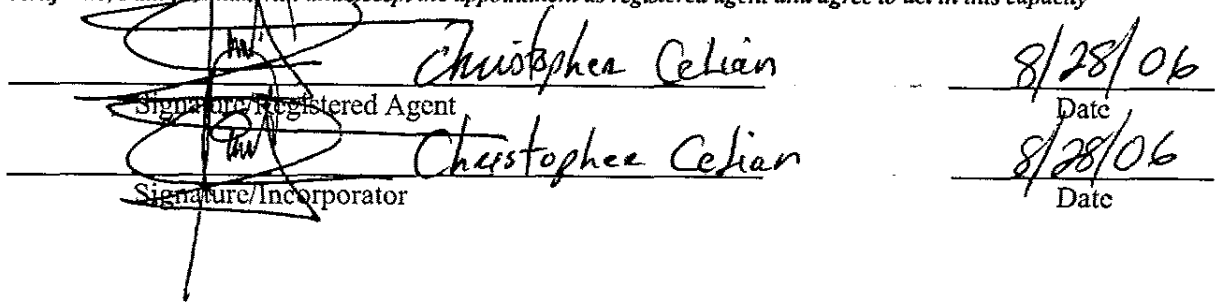 accept the appointment as registered agent and agree to act in this capacity
Christopher Celian 8/28/06
Signature/Registered Agent Date
Christopher Celian 8/28/06
Signature/Incorporator Date